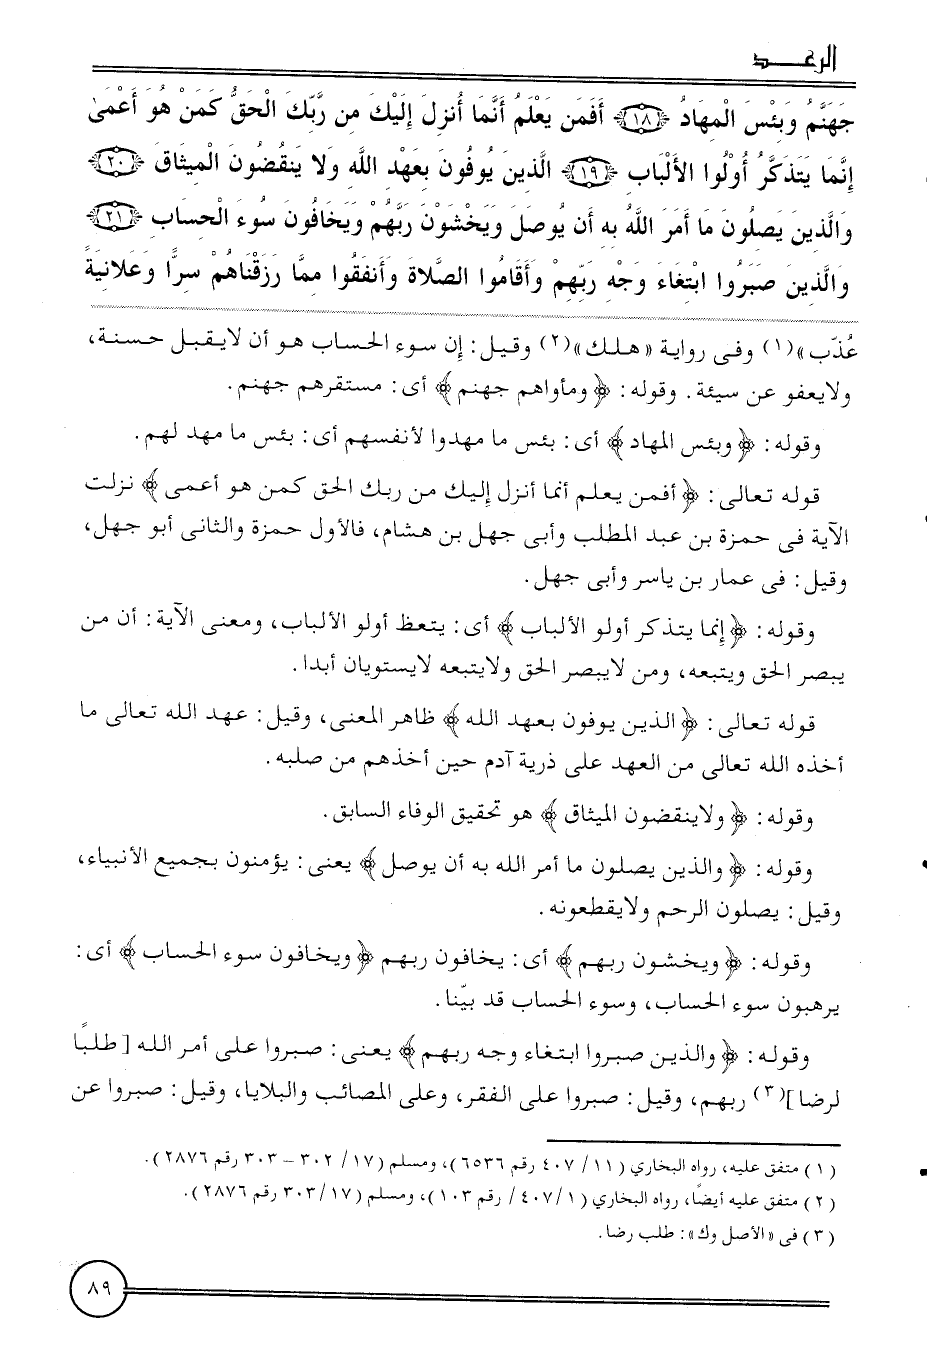 الرعـــد
جَهَنَّمُ وَبِئْسَ الْمِهَادُ ﴿١٨﴾ أَفَمَن يَعْلَمُ أَنَّمَا أُنزِلَ إِلَيْكَ مِن رَّبِّكَ الْحَقُّ كَمَنْ هُوَ أَعْمَىٰ
إِنَّمَا يَتَذَكَّرُ أُوْلُوا الأَلْبَابِ ﴿١٩﴾ الَّذِينَ يُوفُونَ بِعَهْدِ اللَّهِ وَلا يَنقُضُونَ الْمِيثَاقَ ﴿٢٠﴾
وَالَّذِينَ يَصِلُونَ مَا أَمَرَ اللَّهُ بِهِ أَن يُوصَلَ وَيَخْشَوْنَ رَبَّهُمْ وَيَخَافُونَ سُوءَ الْحِسَابِ ﴿٢١﴾
وَالَّذِينَ صَبَرُوا ابْتِغَاءَ وَجْهِ رَبِّهِمْ وَأَقَامُوا الصَّلاةَ وَأَنفَقُوا مِمَّا رَزَقْنَاهُمْ سِرًّا وَعَلانِيَةً
عُذّب»(١) وفى رواية «هلك»(٢) وقيل: إن سوء الحساب هو أن لايقبل حسنة،
ولايعفو عن سيئة. وقوله: ﴿ومأواهم جهنم﴾ أى: مستقرهم جهنم.
وقوله: ﴿وبئس المهاد﴾ أى: بئس ما مهدوا لأنفسهم أى: بئس ما مهد لهم.
قوله تعالى: ﴿أفمن يعلم أنما أنزل إليك من ربك الحق كمن هو أعمى﴾ نزلت
الآية فى حمزة بن عبد المطلب وأبى جهل بن هشام، فالأول حمزة والثانى أبو جهل،
وقيل: فى عمار بن ياسر وأبى جهل.
وقوله: ﴿إنما يتذكر أولو الألباب﴾ أى: يتعظ أولو الألباب، ومعنى الآية: أن من
يبصر الحق ويتبعه، ومن لايبصر الحق ولايتبعه لايستويان أبدا.
قوله تعالى: ﴿الذين يوفون بعهد الله﴾ ظاهر المعنى، وقيل: عهد الله تعالى ما
أخذه الله تعالى من العهد على ذرية آدم حين أخذهم من صلبه.
وقوله: ﴿ولاينقضون الميثاق﴾ هو تحقيق الوفاء السابق.
وقوله: ﴿والذين يصلون ما أمر الله به أن يوصل﴾ يعنى: يؤمنون بجميع الأنبياء،
وقيل: يصلون الرحم ولايقطعونه.
وقوله: ﴿ويخشون ربهم﴾ أى: يخافون ربهم ﴿ويخافون سوء الحساب﴾ أى:
يرهبون سوء الحساب، وسوء الحساب قد بيّنا.
وقوله: ﴿والذين صبروا ابتغاء وجه ربهم﴾ يعنى: صبروا على أمر الله [طلبًا
لرضا](٣) ربهم، وقيل: صبروا على الفقر، وعلى المصائب والبلايا، وقيل: صبروا عن
(١) متفق عليه، رواه البخاري (١١/ ٤٠٧ رقم ٦٥٣٦)، ومسلم (١٧/ ٣٠٢ – ٣٠٣ رقم ٢٨٧٦).
(٢) متفق عليه أيضًا، رواه البخاري (١/ ٤٠٧/ رقم ١٠٣)، ومسلم (١٧/ ٣٠٣ رقم ٢٨٧٦).
(٣) فى «الأصل وك»: طلب رضا.
٨٩